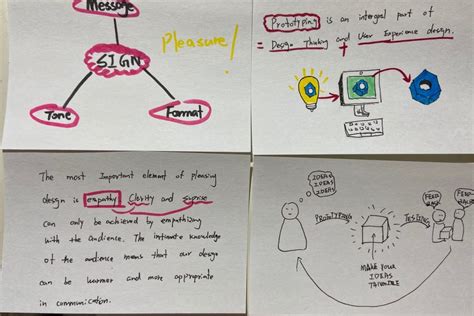 Message
SIGN
Pleasure!
Tone
Format
Prototyping is an intergal part of
= Design Thinking and User Experience design.
The most Important element of pleasing
design is empathy Clarity and suprise
can only be achieved by empathizing
with the audience. The intimate knowledge
of the audience means that our design
can be warmer and more appropriate
in communication.
IDEAS
IDEAS
IDEAS
PROTOTYPING
TESTING
FEED
BACK
FEED
BACK
MAKE YOUR
IDEAS
TANGIBLE